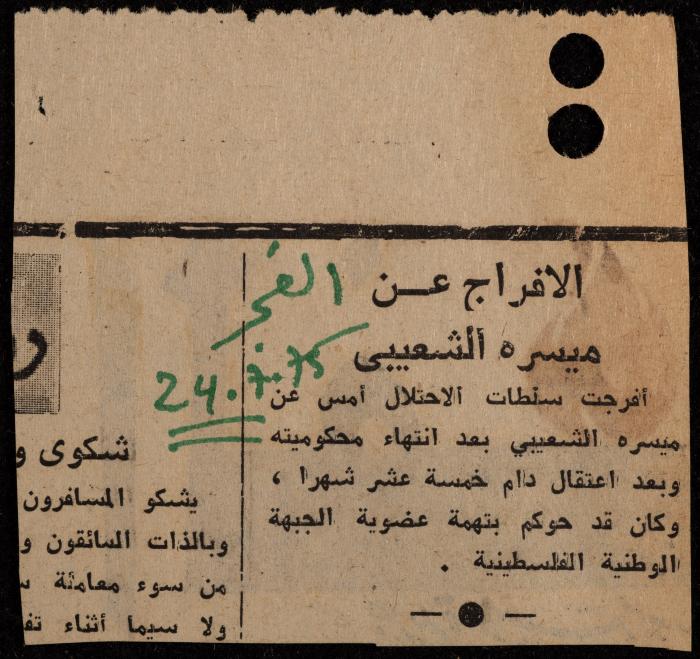 الافراج عــن
ميسره الشعيبي
أفرجت سلطات الاحتلال أمس عن
ميسره الشعيبي بعد انتهاء محكوميته
وبعد اعتقال دام خمسة عشر شهرا ،
وكان قد حوكم بتهمة عضوية الجبهة
الوطنية الفلسطينية .
الفجر
24.7.75
شكوى و
يشكو المسافرون
وبالذات السائقون و
من سوء معاملة س
ولا سيما أثناء تف